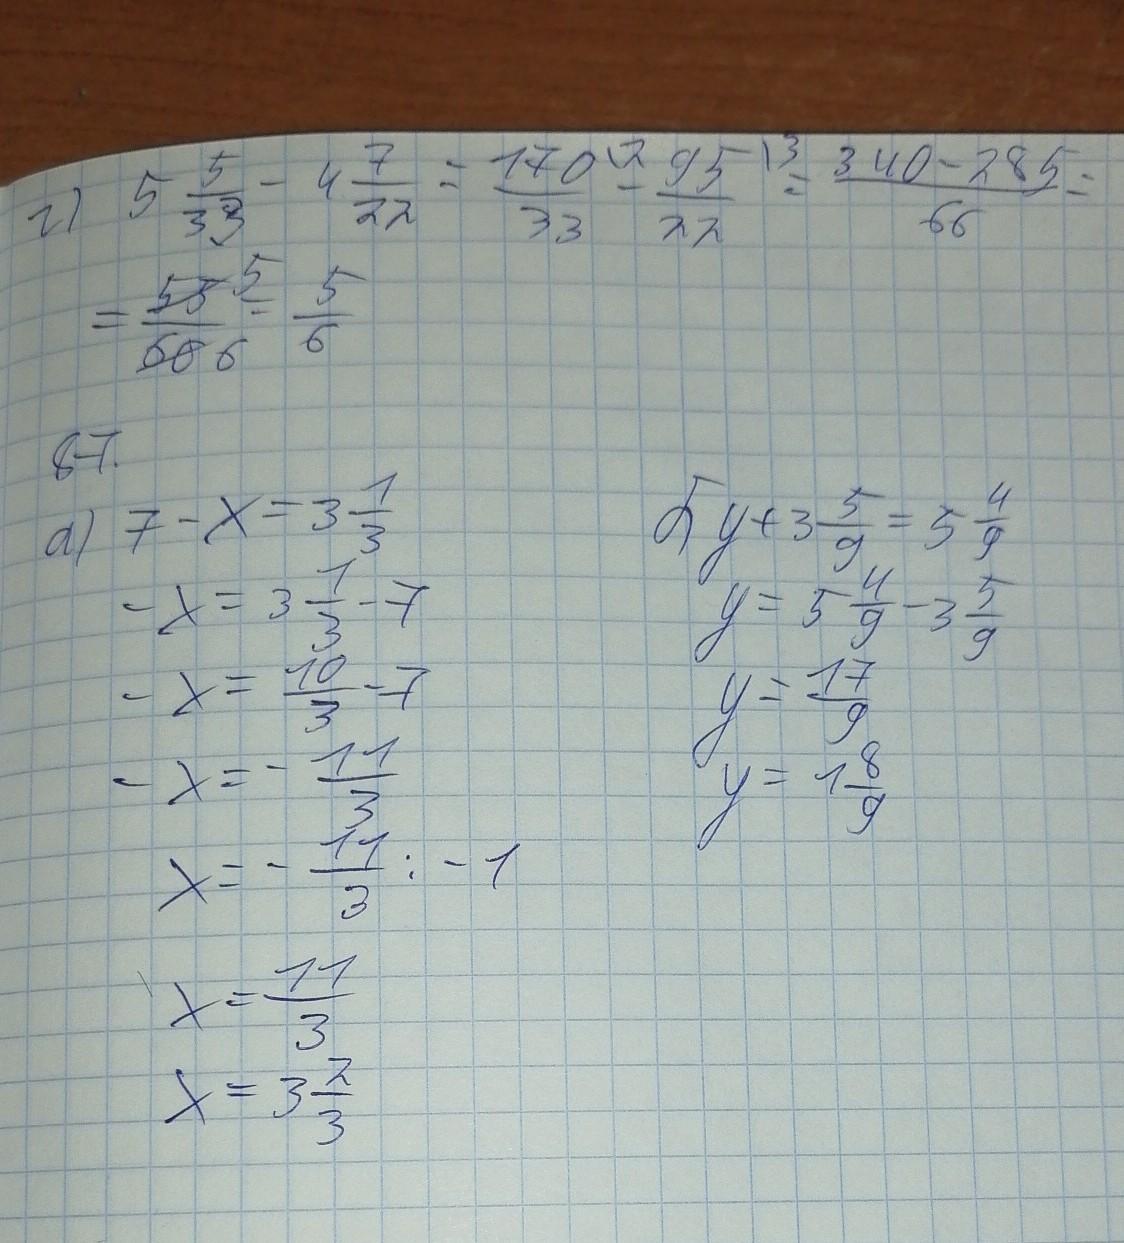 г) 5 5/33 - 4 7/22 = 170\2/33 - 95\3/22 = 340-285/66 =
= 55 5/66 6 = 5/6
87.
а) 7 - x = 3 1/3
-x = 3 1/3 - 7
-x = 10/3 - 7
-x = - 11/3
x = - 11/3 : -1
x = 11/3
x = 3 2/3
б) y + 3 5/9 = 5 4/9
y = 5 4/9 - 3 5/9
y = 17/9
y = 1 8/9